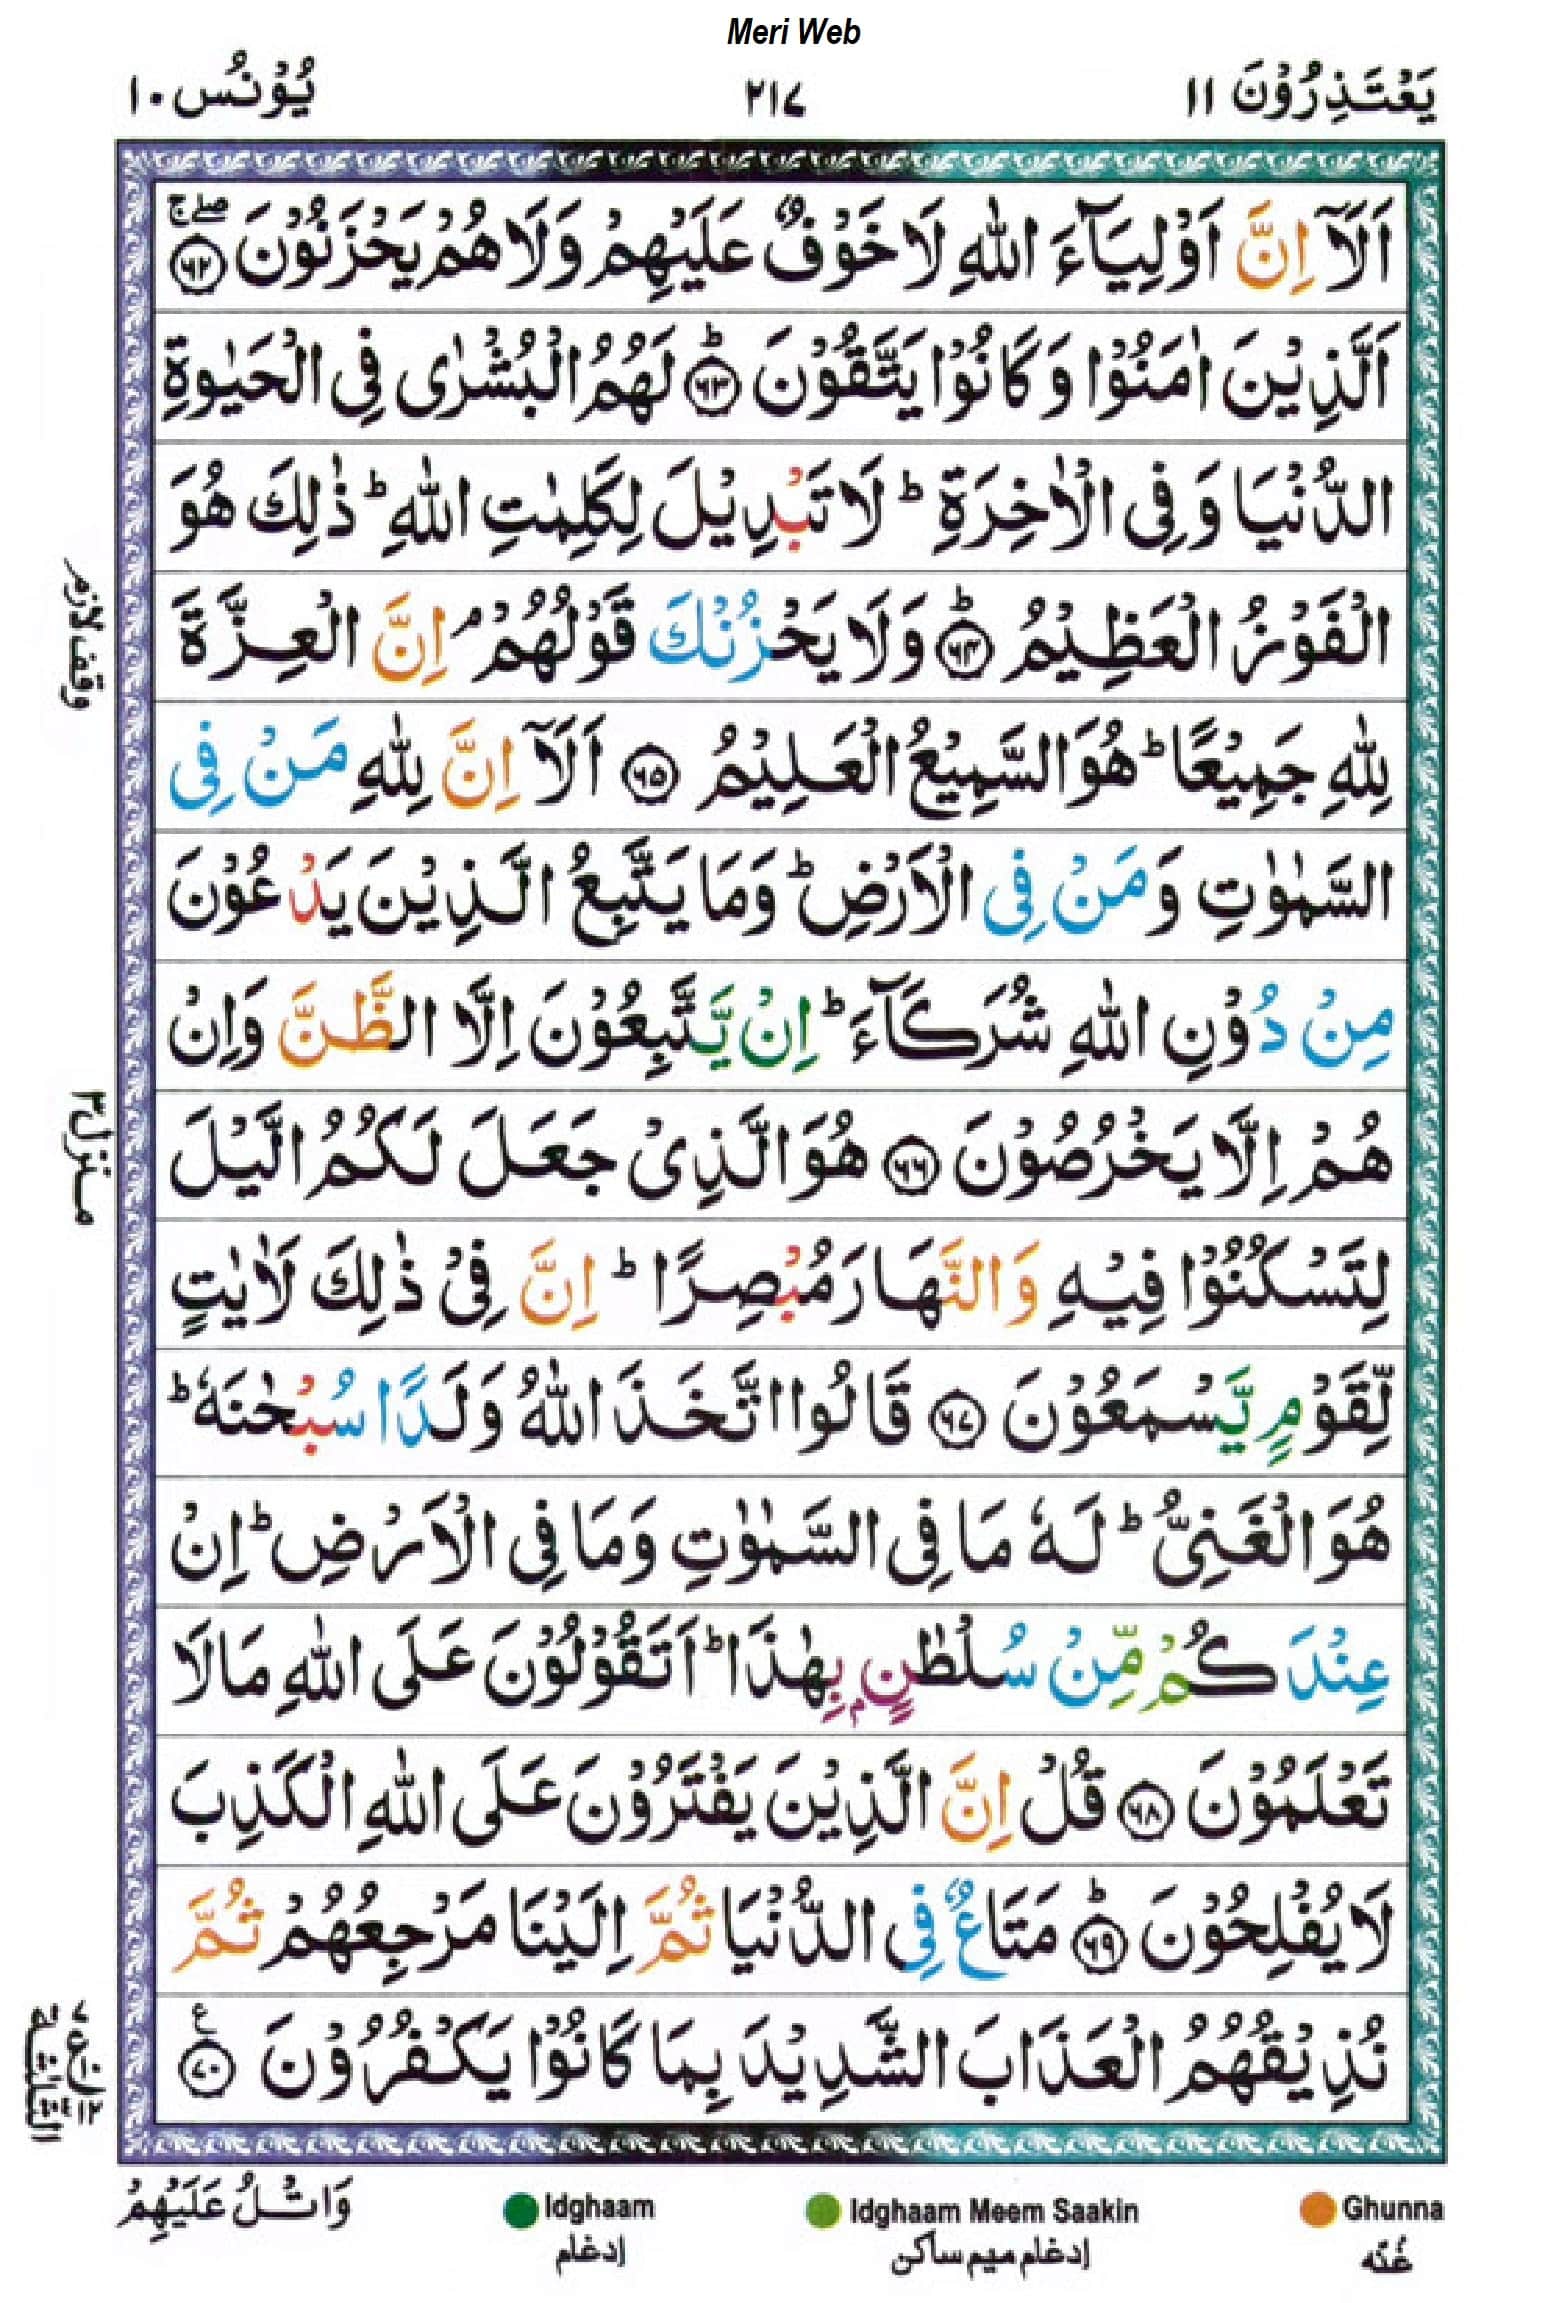 Meri Web
يَعْتَذِرُوْنَ ١١ ٢١٧ يُوْنُس ١٠
اَلَاۤ اِنَّ اَوْلِيَآءَ اللّٰهِ لَا خَوْفٌ عَلَيْهِمْ وَلَا هُمْ يَحْزَنُوْنَ ۖۚ ﴿٦٢﴾
اَلَّذِيْنَ اٰمَنُوْا وَكَانُوْا يَتَّقُوْنَ ؕ ﴿٦٣﴾ لَهُمُ الْبُشْرٰى فِى الْحَيٰوةِ
الدُّنْيَا وَفِى الْاٰخِرَةِ ؕ لَا تَبْدِيْلَ لِكَلِمٰتِ اللّٰهِ ؕ ذٰلِكَ هُوَ
الْفَوْزُ الْعَظِيْمُ ؕ ﴿٦٤﴾ وَلَا يَحْزُنْكَ قَوْلُهُمْ ۘ اِنَّ الْعِزَّةَ
لِلّٰهِ جَمِيْعًا ؕ هُوَ السَّمِيْعُ الْعَلِيْمُ ﴿٦٥﴾ اَلَاۤ اِنَّ لِلّٰهِ مَنْ فِى
السَّمٰوٰتِ وَمَنْ فِى الْاَرْضِ ؕ وَمَا يَتَّبِعُ الَّذِيْنَ يَدْعُوْنَ
مِنْ دُوْنِ اللّٰهِ شُرَكَآءَ ؕ اِنْ يَّتَّبِعُوْنَ اِلَّا الظَّنَّ وَاِنْ
هُمْ اِلَّا يَخْرُصُوْنَ ﴿٦٦﴾ هُوَ الَّذِىْ جَعَلَ لَكُمُ الَّيْلَ
لِتَسْكُنُوْا فِيْهِ وَالنَّهَارَ مُبْصِرًا ؕ اِنَّ فِىْ ذٰلِكَ لَاٰيٰتٍ
لِّقَوْمٍ يَّسْمَعُوْنَ ﴿٦٧﴾ قَالُوا اتَّخَذَ اللّٰهُ وَلَدًا سُبْحٰنَهٗ ؕ
هُوَ الْغَنِىُّ ؕ لَهٗ مَا فِى السَّمٰوٰتِ وَمَا فِى الْاَرْضِ ؕ اِنْ
عِنْدَكُمْ مِّنْ سُلْطٰنٍۭ بِهٰذَا ؕ اَتَقُوْلُوْنَ عَلَى اللّٰهِ مَا لَا
تَعْلَمُوْنَ ﴿٦٨﴾ قُلْ اِنَّ الَّذِيْنَ يَفْتَرُوْنَ عَلَى اللّٰهِ الْكَذِبَ
لَا يُفْلِحُوْنَ ؕ ﴿٦٩﴾ مَتَاعٌ فِى الدُّنْيَا ثُمَّ اِلَيْنَا مَرْجِعُهُمْ ثُمَّ
نُذِيْقُهُمُ الْعَذَابَ الشَّدِيْدَ بِمَا كَانُوْا يَكْفُرُوْنَ ﴿٧٠﴾ ع
وقف لازم
منزل ٣
وَاتْلُ عَلَيْهِمْ
Idghaam Idghaam Meem Saakin Ghunna
غُنّه إدغام ميم ساكن إدغام